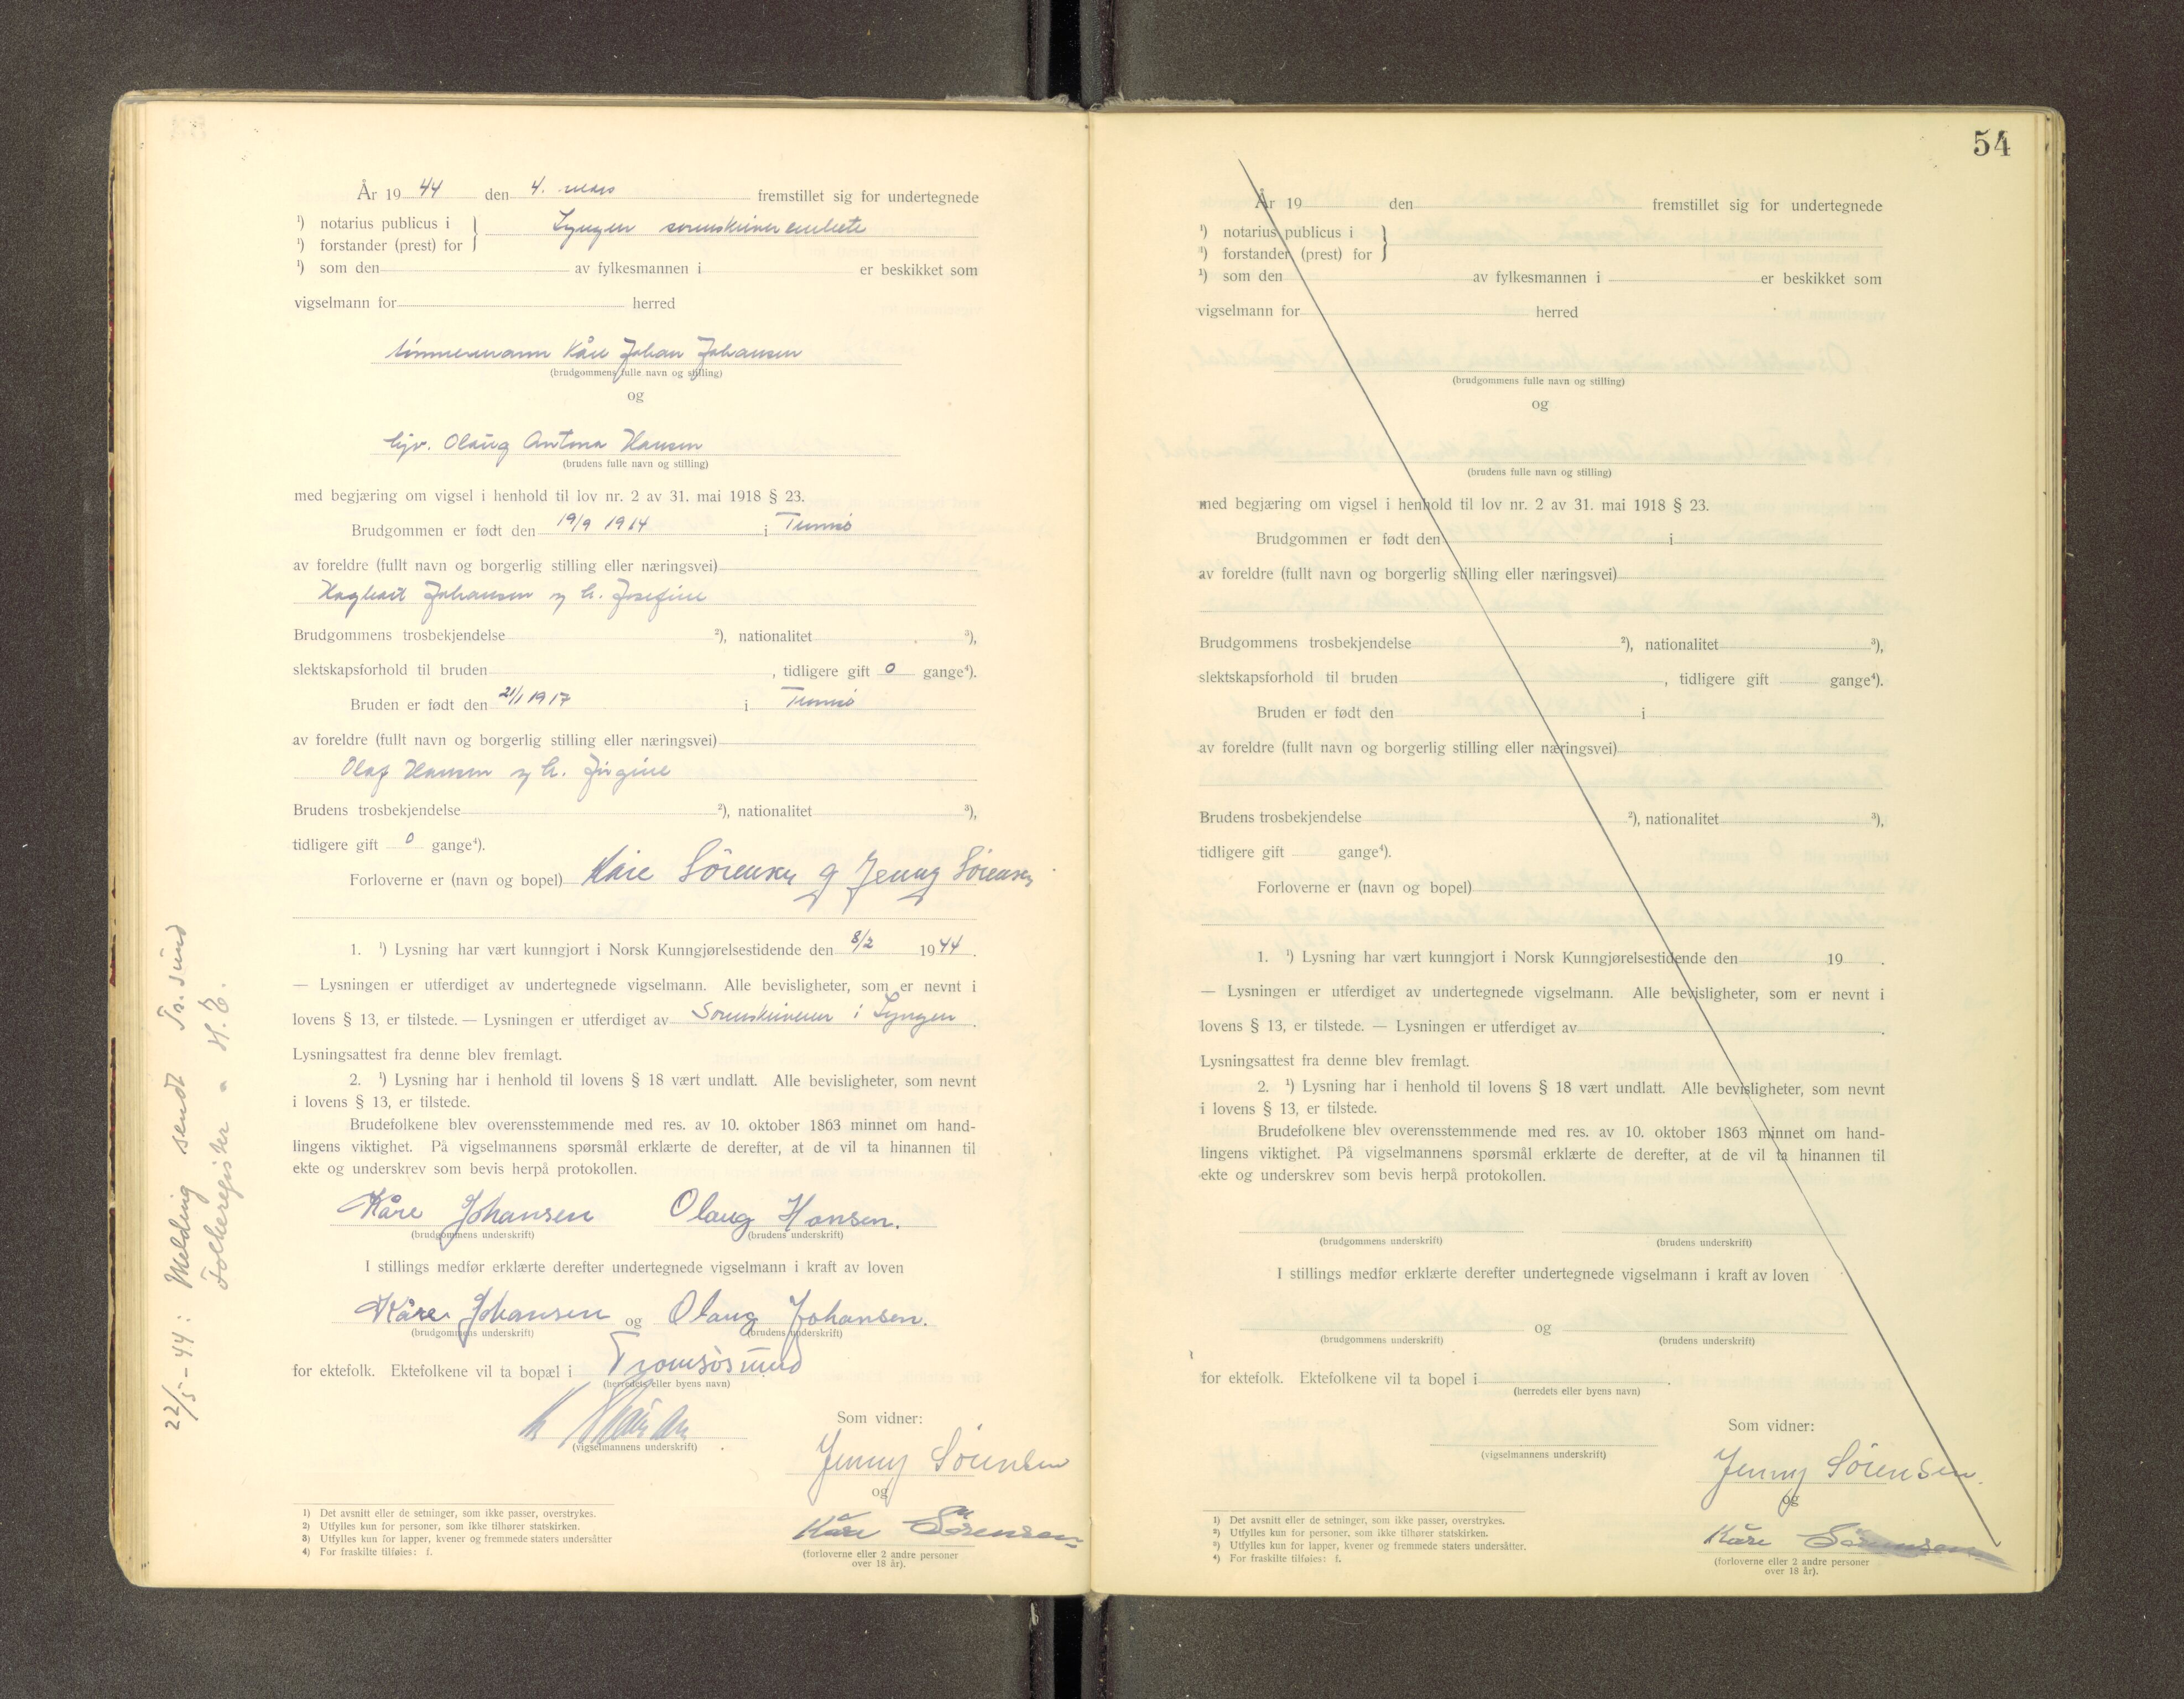 År 19 44 den 4. mars fremstillet sig for undertegnede
¹) notarius publicus i } Lyngen sorenskriverembete
¹) forstander (prest) for
¹) som den av fylkesmannen i er beskikket som
vigselmann for herred
tømmermann Kåre Johan Johansen
(brudgommens fulle navn og stilling)
og
hjv. Olaug Antona Hansen
(brudens fulle navn og stilling)
med begjæring om vigsel i henhold til lov nr. 2 av 31. mai 1918 § 23.
Brudgommen er født den 19/9 1914 i Tromsö
av foreldre (fullt navn og borgerlig stilling eller næringsvei)
Hagbart Johansen og h. Josefine
Brudgommens trosbekjendelse ²), nationalitet ³),
slektskapsforhold til bruden , tidligere gift 0 gange⁴).
Bruden er født den 21/1 1917 i Tromsö
av foreldre (fullt navn og borgerlig stilling eller næringsvei)
Olaf Hansen og h. Jörgine
Brudens trosbekjendelse ²), nationalitet ³),
tidligere gift 0 gange⁴).
Forloverne er (navn og bopel) Kåre Sörensen og Jenny Sörensen
1. ¹) Lysning har vært kunngjort i Norsk Kunngjørelsestidende den 8/2 1944.
— Lysningen er utferdiget av undertegnede vigselmann. Alle bevisligheter, som er nevnt i
lovens § 13, er tilstede. — Lysningen er utferdiget av Sorenskriveren i Lyngen.
Lysningsattest fra denne blev fremlagt.
2. ¹) Lysning har i henhold til lovens § 18 vært undlatt. Alle bevisligheter, som nevnt
i lovens § 13, er tilstede.
Brudefolkene blev overensstemmende med res. av 10. oktober 1863 minnet om hand-
lingens viktighet. På vigselmannens spørsmål erklærte de derefter, at de vil ta hinannen til
ekte og underskrev som bevis herpå protokollen.
Kåre Johansen Olaug Hansen.
(brudgommens underskrift) (brudens underskrift)
I stillings medfør erklærte derefter undertegnede vigselmann i kraft av loven
Kåre Johansen og Olaug Johansen.
(brudgommens underskrift) (brudens underskrift)
for ektefolk. Ektefolkene vil ta bopæl i Tromsösund
(herredets eller byens navn)
(vigselmannens underskrift)
Som vidner:
Jenny Sörensen
og
Kåre Sörensen
(forloverne eller 2 andre personer
over 18 år).
1) Det avsnitt eller de setninger, som ikke passer, overstrykes.
2) Utfylles kun for personer, som ikke tilhører statskirken.
3) Utfylles kun for lapper, kvener og fremmede staters undersåtter
4) For fraskilte tilføies: f.
22/5-44: Melding sendt Tr.sund
Folkeregister
54
År 19 den fremstillet sig for undertegnede
¹) notarius publicus i }
¹) forstander (prest) for
¹) som den av fylkesmannen i er beskikket som
vigselmann for herred
(brudgommens fulle navn og stilling)
og
(brudens fulle navn og stilling)
med begjæring om vigsel i henhold til lov nr. 2 av 31. mai 1918 § 23.
Brudgommen er født den i
av foreldre (fullt navn og borgerlig stilling eller næringsvei)
Brudgommens trosbekjendelse ²), nationalitet ³),
slektskapsforhold til bruden , tidligere gift gange⁴).
Bruden er født den i
av foreldre (fullt navn og borgerlig stilling eller næringsvei)
Brudens trosbekjendelse ²), nationalitet ³),
tidligere gift gange⁴).
Forloverne er (navn og bopel)
1. ¹) Lysning har vært kunngjort i Norsk Kunngjørelsestidende den 19 .
— Lysningen er utferdiget av undertegnede vigselmann. Alle bevisligheter, som er nevnt i
lovens § 13, er tilstede. — Lysningen er utferdiget av .
Lysningsattest fra denne blev fremlagt.
2. ¹) Lysning har i henhold til lovens § 18 vært undlatt. Alle bevisligheter, som nevnt
i lovens § 13, er tilstede.
Brudefolkene blev overensstemmende med res. av 10. oktober 1863 minnet om hand-
lingens viktighet. På vigselmannens spørsmål erklærte de derefter, at de vil ta hinannen til
ekte og underskrev som bevis herpå protokollen.
(brudgommens underskrift) (brudens underskrift)
I stillings medfør erklærte derefter undertegnede vigselmann i kraft av loven
og
(brudgommens underskrift) (brudens underskrift)
for ektefolk. Ektefolkene vil ta bopel i .
(herredets eller byens navn)
(vigselmannens underskrift)
Som vidner:
Jenny Sörensen.
og
Kåre Sörensen
(forloverne eller 2 andre personer
over 18 år).
1) Det avsnitt eller de setninger, som ikke passer, overstrykes.
2) Utfylles kun for personer, som ikke tilhører statskirken.
3) Utfylles kun for lapper, kvener og fremmede staters undersåtter.
4) For fraskilte tilføies: f.